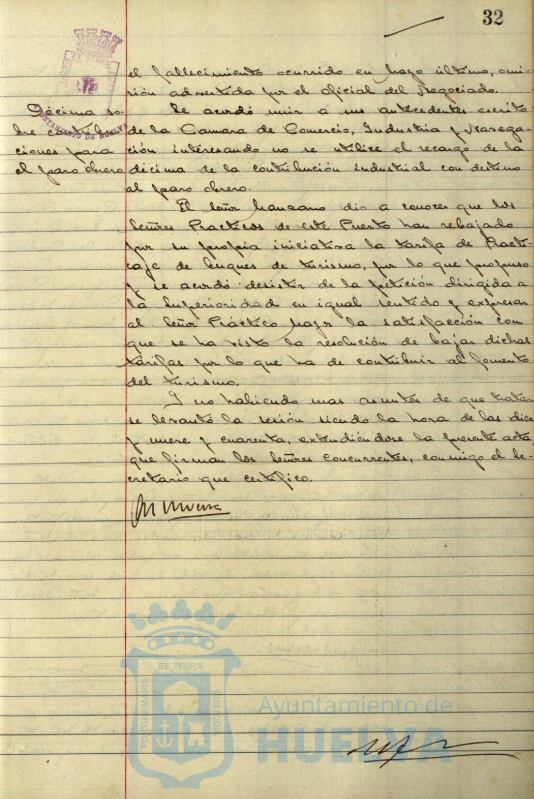 32
el fallecimiento ocurrido en Mayo último, omi-
sión advertida por el oficial del Negociado.
Décima so-
bre contribu-
ciones para
el paro obrero
Se acordó unir a sus antecedentes escrito
de la Camara de Comercio, Industria y Navega-
ción interesando no se utilice el recargo de la
décima de la contribución industrial con destino
al paro obrero.
El Señor Manzano dió a conocer que los
Señores Practicos de este Puerto han rebajado
por su propia iniciativa la tarifa de Practi-
caje de buques de turismo, por lo que propuso
y se acordó desistir de la petición dirigida a
la Superioridad en igual sentido y expresar
al Señor Práctico Mayor la satisfacción con
que se ha visto la resolución de bajar dichas
tarifas por lo que ha de contribuir al fomento
del turismo.
Y no habiendo mas asuntos de que tratar
se levantó la sesión siendo la hora de las diez
y nueve y cuarenta, extendiéndose la presente acta
que firman los Señores Concurrentes, conmigo el Se-
cretario que certifico.
PORTUS MARIS
ET TERRÆ
CUSTODIA
Ayuntamiento de
HUELVA